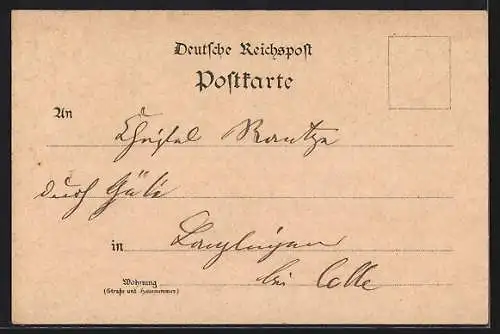 Deutsche Reichspost
Postkarte
An Christel Rautze
durch Güte
in Langlingen
bei Celle
Wohnung
(Straße und Hausnummer)